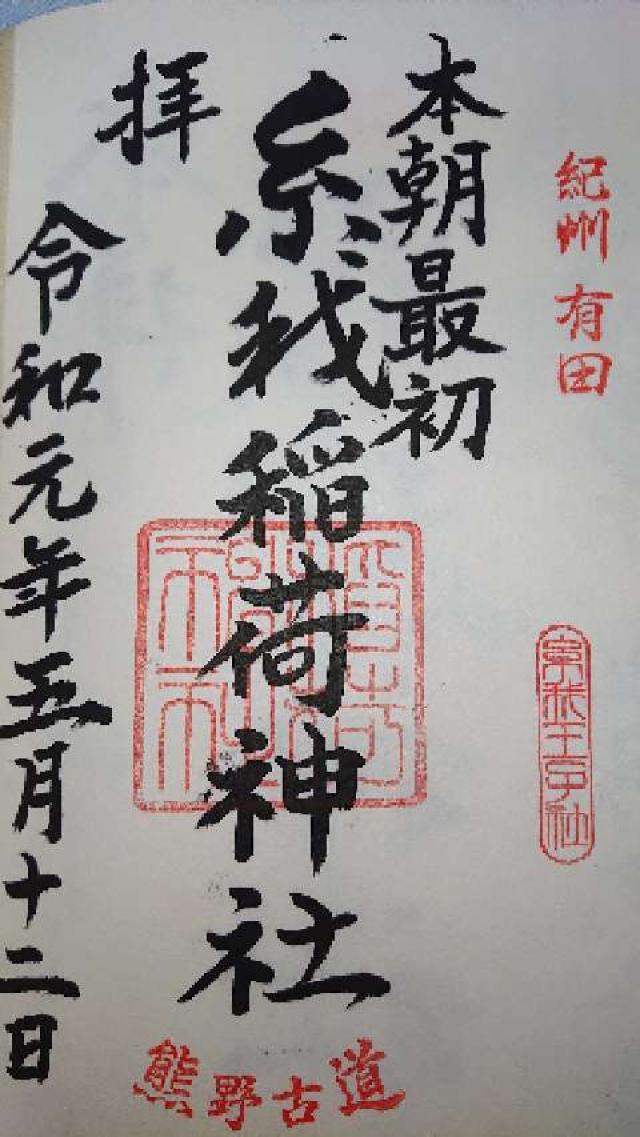 紀州 有田
本朝最初
糸我稲荷神社
拝
令和元年五月十二日
熊野古道